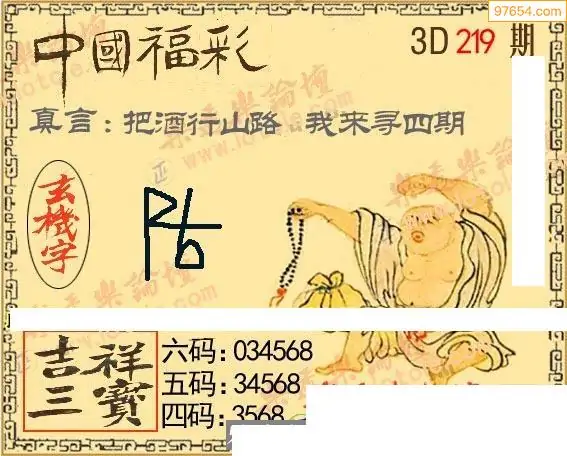 97654.com
中國福彩
3D 219 期
真言：把酒行山路 我来寻四期
玄機字
吉祥三寳
六码：034568
五码：34568
四码：3568